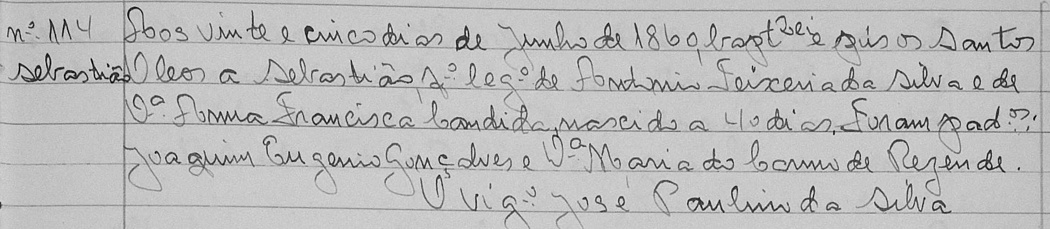 nº 114 Aos vinte e cinco dias de Junho de 1869 baptizei e pus os Santos
Sebastião Oleos a Sebastião, fº legº de Antonio Teixeria da Silva e de
Dª Anna Francisca Candida, nascido a 40 dias, Foram padºs:
Joaquim Eugenio Gonçalves e Dª Maria do Carmo de Rezende.
O Vigº José Paulino da Silva